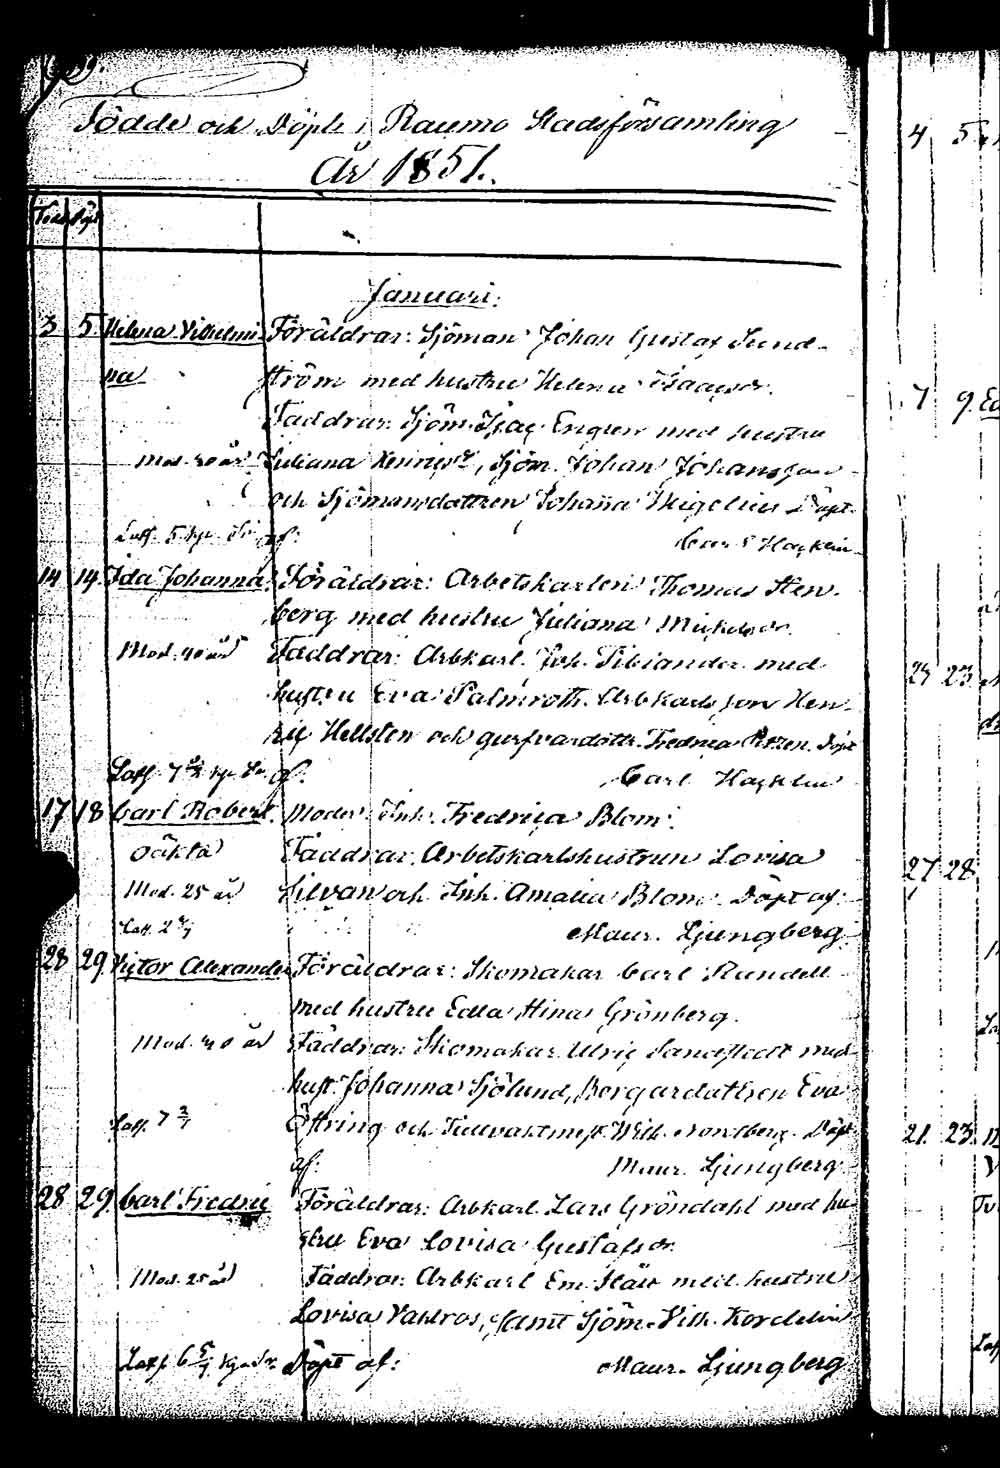 Födde och Döpte i Raumo Stadsförsamling
År 1851.
Födde Döpt
Januari.
3 5. Helena Vilhelmi- Föräldrar: Sjöman Johan Gustaf Sund-
na ström med hustru Helena Isacsdr.
Faddrar: Sjöm. Isac Engren med hustru
Mod. år Juliana Henricsdr, Sjöm. Johan Johansson
och Sjömansdottren Johanna Migelius Döpt
af: Carl Hacklin
14 14. Ida Johanna. Föräldrar: Arbetskarlen Thomas Sten-
berg med hustru Juliana Mickelsdr.
Mod. 40 år Faddrar: Arbkarl. Joh. Tibiander med
hustru Eva Palmroth. Arbkarlsson Hen-
ric Hellsten och Fredrica Döpt
Latt. 7 af: Carl Hacklin
17 18 Carl Robert. Moder: Inh. Fredrica Blom.
oäkta Faddrar. Arbetskarlshustrun Lovisa
Mod. 25 år Silvan och Inh. Amalia Blom. Döpt af:
Latt. 2 Maur. Ljungberg
28 29. Victor Alexander Föräldrar: Skomakar Carl Rundell
med hustru Edla Stina Grönberg.
Mod. år Faddrar: Skomakar Ulric Sandstedt med
hust. Johanna Sjölund, Borgardottren Eva
Latt. 7 Öftring och Tullvaktmest. Wilh. Döpt
af: Maur. Ljungberg
28 29. Carl Fredric Föräldrar: Arbkarl. Lars Gröndahl med hu-
stru Eva Lovisa Gustafsdr.
Mod. 25 år Faddrar: Arbkarl Em. med hustru
Lovisa Vahlros, samt Sjöm. Vilh. Kordelin
Latt. 6 Döpt af: Maur. Ljungberg
4 5
7 9
23
27 28
21. 23.